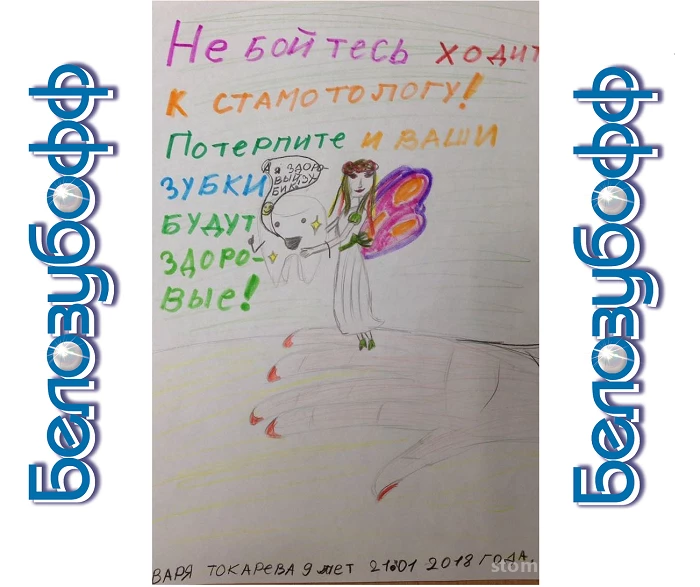 Белозубофф
Не бойтесь ходит
к стамотологу!
Потерпите и ваши
зубки
будут
здоро-
вые!
А я здоро-
вый зу
бик!
Варя Токарева 9 лет 21.01 2018 года.
stom
Белозубофф